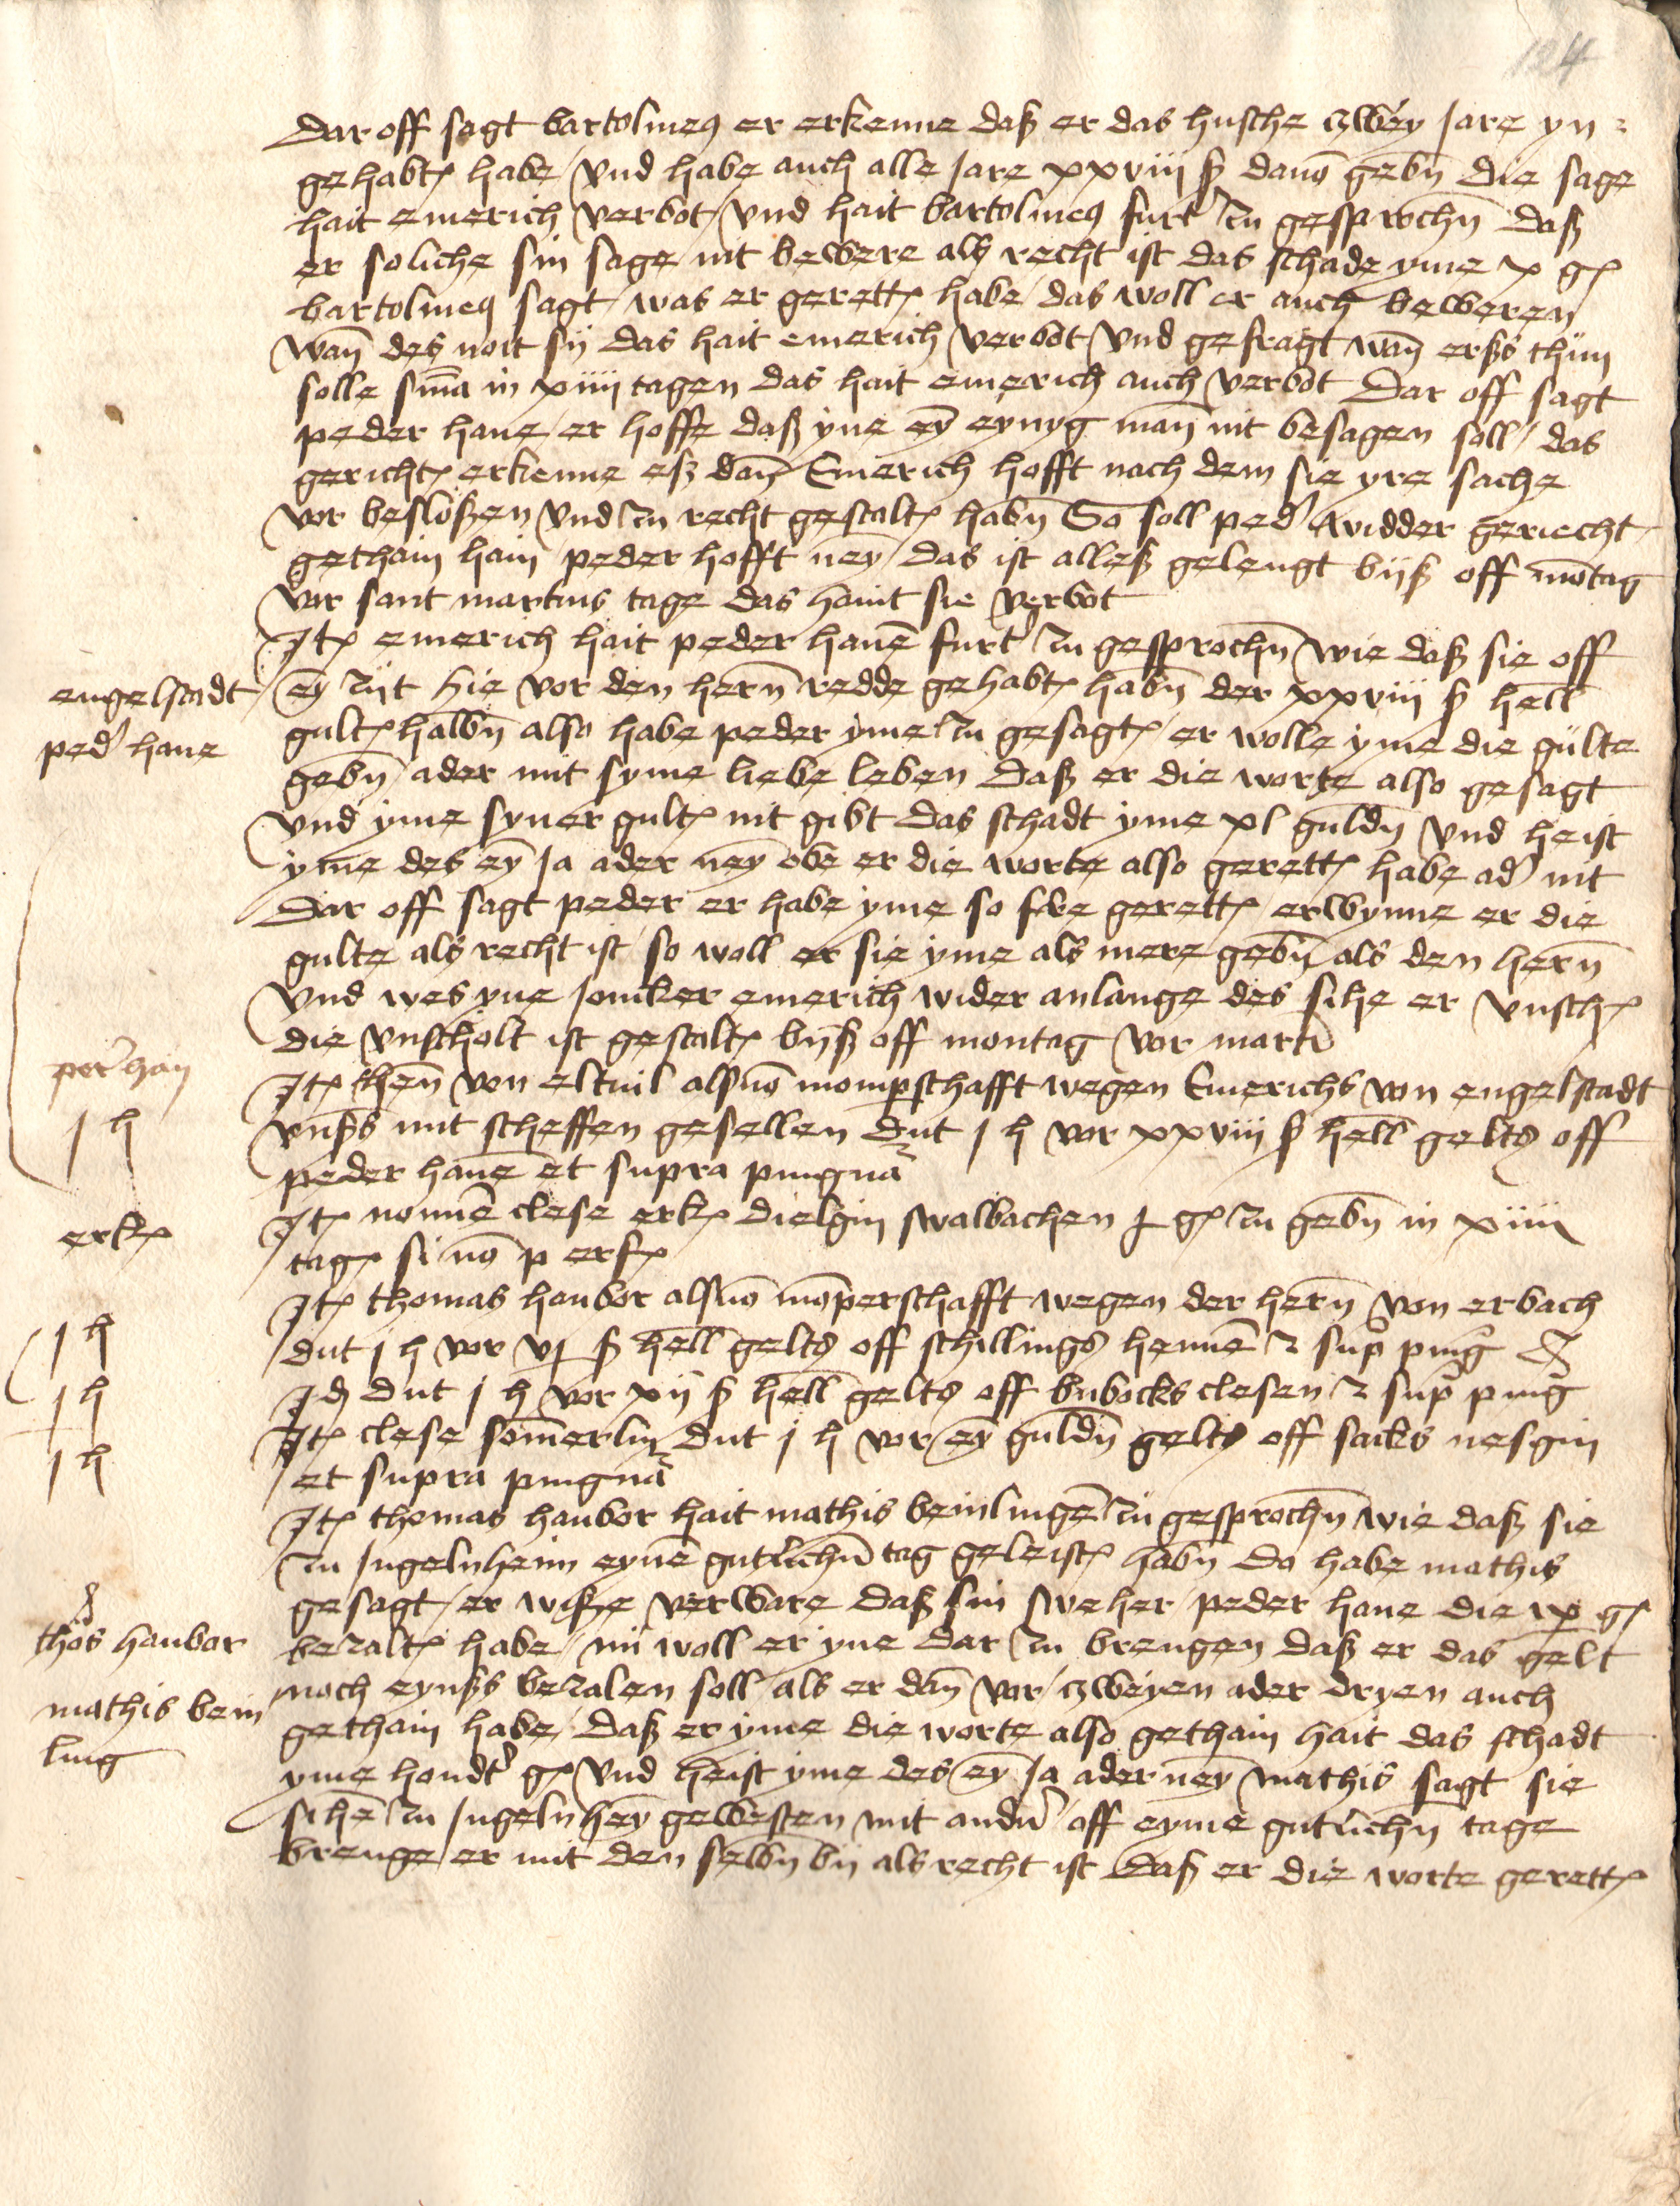 124
Dar off sagt bartolmeꝰ er erkenne daß er das husche zwey Jare yn
gehabt habe und habe auch alle Jare xxviii ß davo gebn die sage
hait emerich verbot und hait bartolmeꝰ furt zu gesprochn daß
er soliche sin sage nit bewere als recht ist das schade yme x g
bartolmeꝰ sagt was er gerett habe das woll er auch beweren
wan des noit sij das hait emerich verbot und gefragt wan erßs thun
solle snia in xiiii tagen das hait emerich auch verbot Dar off sagt
peder hane er hoffe daß yne ey eynyg man nit besagen soll das
gericht erkenne eß dan Emerich hofft nach dem sie yre sache
vor besloßen und zu recht gestalt habn So soll ped widder geriecht
gethain hain peder hofft ney das ist alleß gelengt bijß off montag
vor sant martins tage das haint sie verbot
Jt emerich hait peder hane furt zu gesprochn wie daß sie off
engelstadt
ped hane
ey zijt hie vor den hern redde gehabt habn der xxviii ß hell
gult halbn also habe peder yme zu gesagt er wolle yme die gülte
gebn ader mit syme liebe leben Daß er die worte also gesagt
und yme syner gult nit gibt das schadt yme xl guldn und heist
yme des ey Ja ader ney obe er die worte also gerett habe ad nit
Dar off sagt peder er habe yme so fere gerett erwynne er die
gulte als recht ist so woll er sie yme als mere gebn als den hern
und wes yne Joncker emerich wider anlange des sihe er unsch
die unscholt ist gestalt bijß off montag vor marti
per han
Jt hen von eltuil alsuo momperschafft wegen Emerichs von engelstadt
j h
unßs mit scheffen gesellen dut j h vor xxviii ß hell gelts off
peder hane et supra pingna
erk
Jt nonne clese erk dielgin swalbachen j g zu gebn in xiiii
tag si no p erf
Jt thomas haubor alsuo momperschafft wegen der hern von erbach
j h
dut j h vor vj ß hell gelts off schillings henne et sup ping
j h
Jd dut j h vor xij ß hell gelts off bubocks clesen et sup ping
j h
Jt clese somerlin dut j h vor ey guldn gelts off sacks nesgin
et supra pingna
Jt thomas haubor hait mathis beinlinge zu gesprochn wie daß sie
zu Jngelnheim eyne gutlichn tag geleist habn do habe mathis
gesagt er wiße verware daß sin sweher peder hane die x g
thos haubor
mathis bein
ling
bezalt habe nu woll er yne dar zu brengen daß er das gelt
noch eynßs bezalen soll als er dan vor zweyen ader dryen auch
gethain habe Daß er yme die worte also gethain hait das schadt
yme hondt g und heist yme des ey Ja ader ney mathis sagt sie
sihe zu Jngelnhey gewesten mit andn off eyme gutlichn tage
brenge er mit den selbn bij als recht ist Daß er die worte gerett